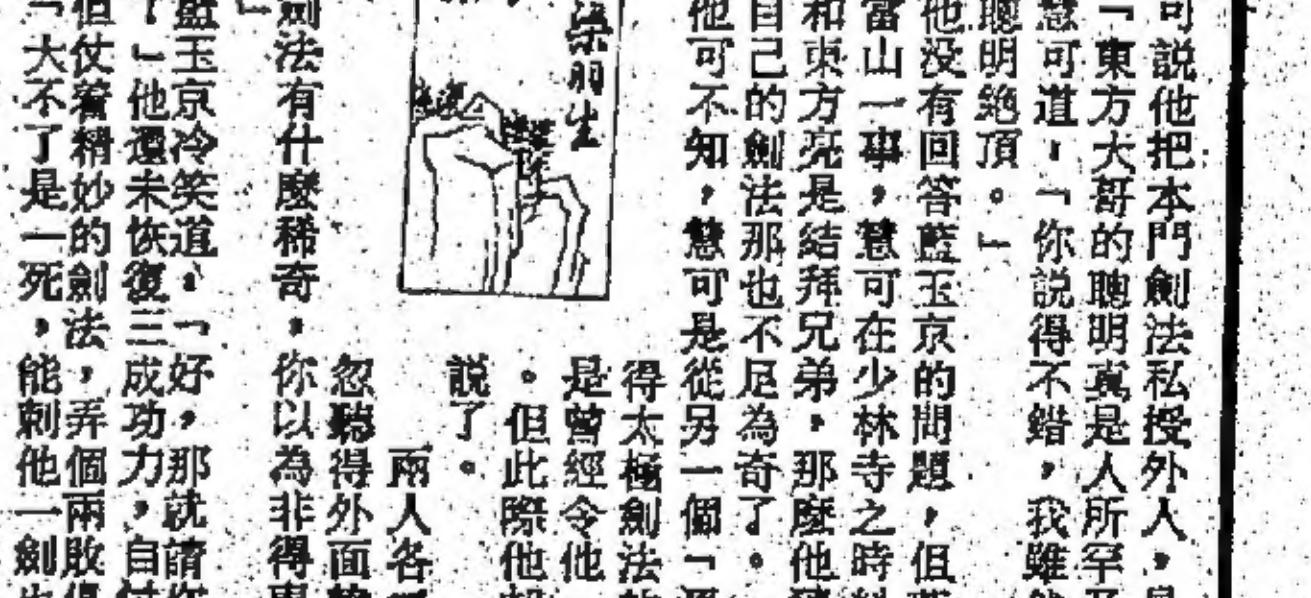 可説他把本門劍法私授外人，
「東方大哥的聰明真是人所罕
慧可道，「你説得不錯，我雖
聰明絶頂。」
他没有回答藍玉京的問題，但
當山一事，慧可在少林寺之時
和東方亮是結拜兄弟，那麼他
自己的劍法那也不足為奇了。
他可不知，慧可是從另一個「
得太極劍法
是曾經令他
。但此際他
説了。
梁羽生
兩人各
忽聽得外面
劍法有什麼稀奇，你以為非得
」
藍玉京冷笑道，「好，那就請
」他還未恢復三成功力，自忖
但仗着精妙的劍法，弄個兩敗
「大不了是一死，能刺他一劍